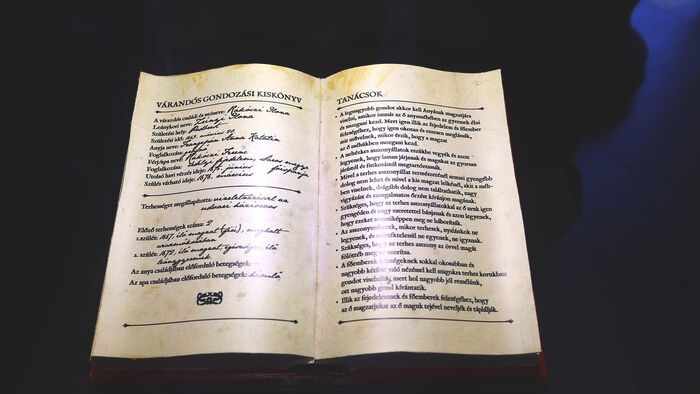 VÁRANDÓS GONDOZÁSI KISKÖNYV
A várandós családi és utóneve: Rákóczi Ilona
Leánykori neve: Zrínyi Ilona
Születési hely:
Születési idő: 1643. március
Anyja neve: Frangepán Anna Katalin
Foglalkozása:
Férj/apa neve: Rákóczi Ferenc
Foglalkozása: Erdélyi fejedelem, Sáros megye főispánja
Utolsó havi vérzés ideje: 1675. június
Szülés várható ideje: 1676. március
Terhességet megállapította: vizeletnézéssel az
udvari háziorvos
Előző terhességek száma: 2
1. szülés: 1667, élő magzat (fiú), meghalt
csecsemőkorában
2. szülés: 1672, élő magzat, egészséges, élő
leánygyermek
Az anya családjában előforduló betegségek: –
Az apa családjában előforduló betegségek:
TANÁCSOK
• A legnagyobb gondot akkor kell Anyának magzatjára
viselni, amikor immár az ő anyaméhében az gyermek élni
és mozgani kezd. Mert igen illik az fejedelem és főember
feleségéhez, hogy igen okosan és eszesen meglássák,
mit művelnek, mikor érzik, hogy a magzat
az ő méhükben mozgani kezd.
• A nehézkes asszonyállatok eszükbe vegyék és azon
legyenek, hogy lassan járjanak és magukat az gyorsan
járástól és futkosástól megtartóztassák.
• Mivel a terhes asszonyállat természeténél semmi gyengébb
dolog nem lehet és mivel a kis magzat lelkénél, akit a méh-
ben viselnek, drágább dolog nem találtathatik, nagy
vigyázást és szorgalmatos őrzést kívánjon magának.
• Szükséges, hogy az terhes asszonyállatokkal az ő uruk igen
gyengéden és nagy szeretettel bánjanak és azon legyenek,
hogy ezeket semmiképpen meg ne háborítsák.
• Az asszonyembernek, mikor terhesek, nyalánkok ne
legyenek, és mértéktelenül ne egyenek, ne igyanak.
• Szükség, hogy az terhes asszony az övvel magát
fölötébb meg ne szorítsa.
• A főemberek feleségeknek sokkal okosabban és
nagyobb kétfelé való nézéssel kell magokra terhes korukban
gondot viselniük, mert hol nagyobb jól remélünk,
ott nagyobb gond kívántatik.
• Illik az fejedelemnek és főemberek feleségéhez, hogy
az ő magzatjukat az ő maguk tejével neveljék és táplálják.